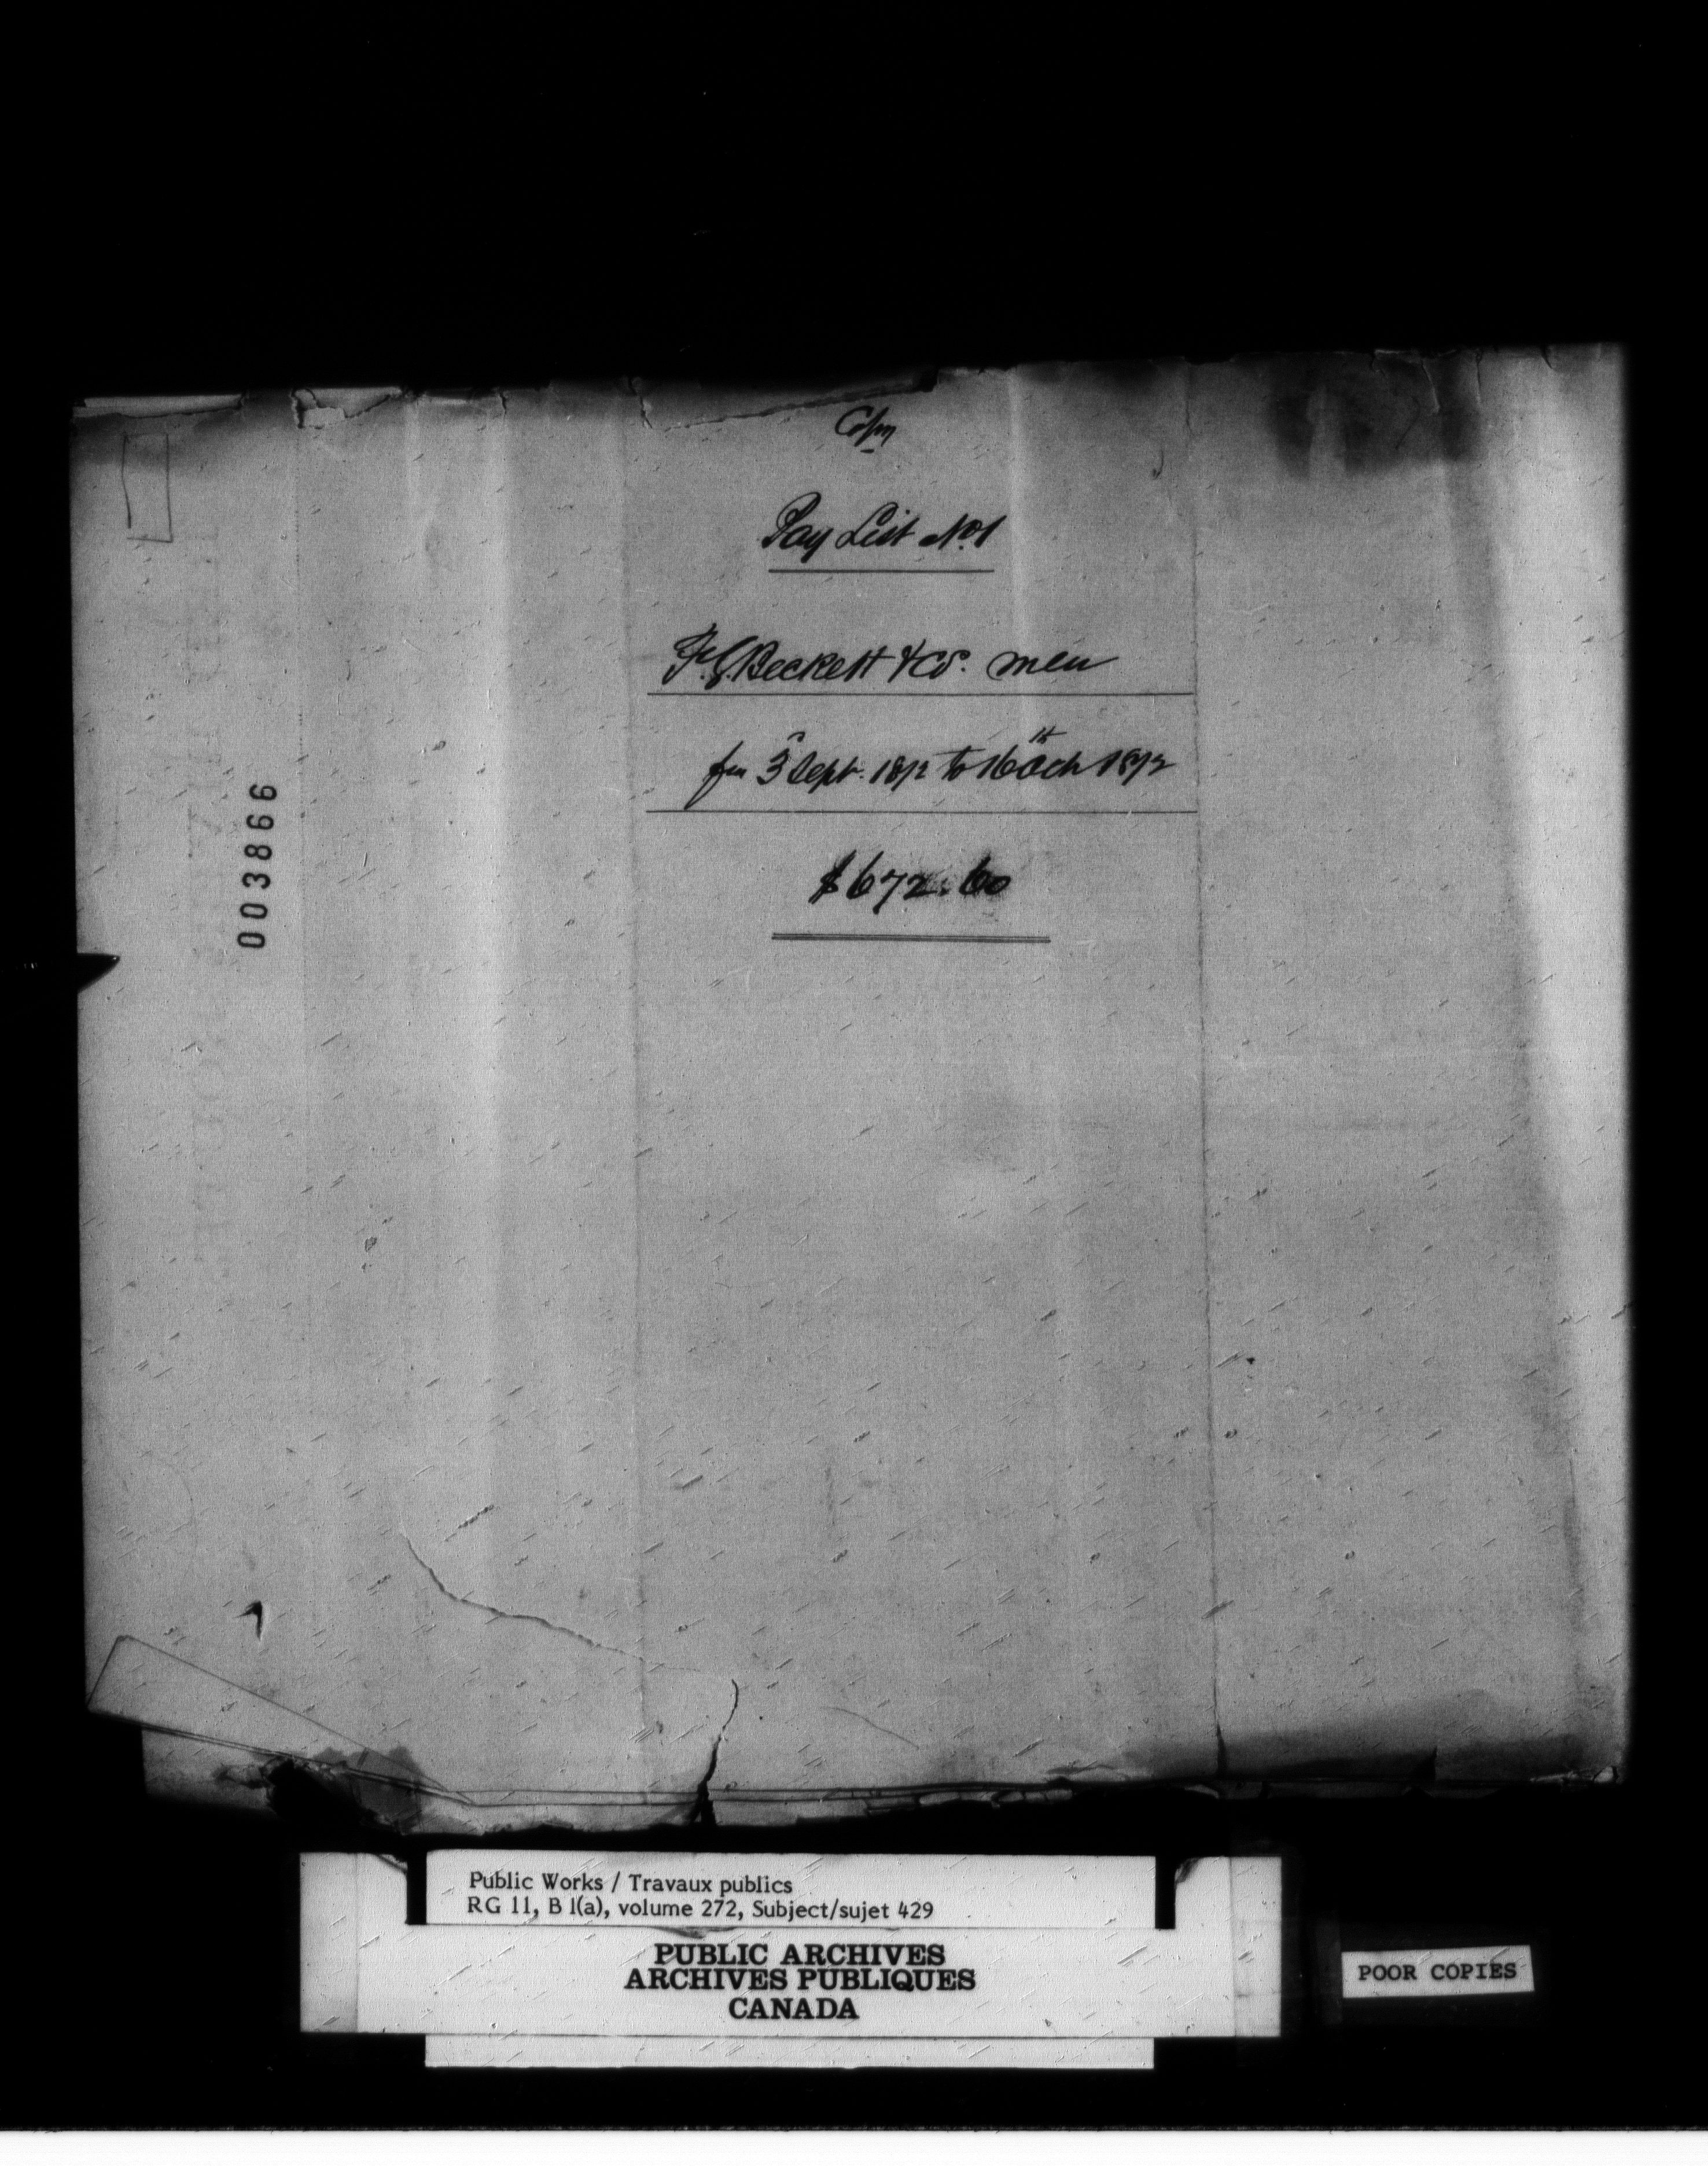 Copy
Pay List No. 1
F. G. Beckett & Co. men
fm 3 Sept. 1872 to 16th Oct 1872
$672.60
003866
Public Works / Travaux publics
RG 11, B 1(a), volume 272, Subject/sujet 429
PUBLIC ARCHIVES
ARCHIVES PUBLIQUES
CANADA
POOR COPIES